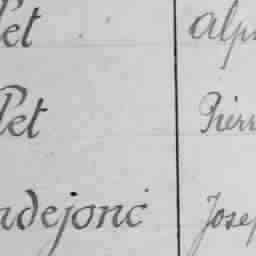 Pet Alph
Pet Pierr
ndejonc Josep